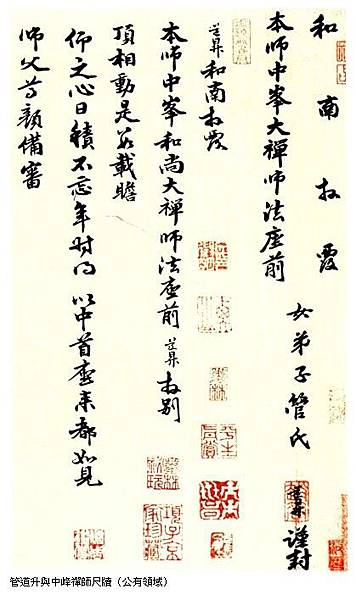 和南拜覆
本師中峯大禪師法座前
女弟子管氏道昇謹封
道昇和南拜覆
本師中峯和尚大禪師法座前道昇拜別
頂相動是數載瞻
仰之心日積不忘年時得以中首座來都如見
師父尊顏備審
管道升與中峰禪師尺牘（公有領域）